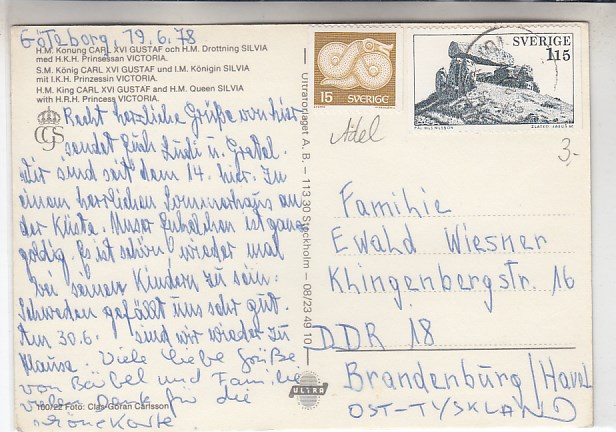 Göteborg, 19.6.78
H.M. Konung CARL XVI GUSTAF och H.M. Drottning SILVIA
med H.K.H. Prinsessan VICTORIA.
S.M. König CARL XVI GUSTAF und I.M. Königin SILVIA
mit I.K.H. Prinzessin VICTORIA.
H.M. King CARL XVI GUSTAF and H.M. Queen SILVIA
with H.R.H. Princess VICTORIA.
Recht herzliche Grüße von hier
sendet Euch Rudi u. Gretel.
Wir sind seit dem 14. hier. In
einem herrlichen Sommerhaus an
der Küste. Unser Enkelchen ist ganz
goldig. Es ist schön wieder mal
bei seinen Kindern zu sein.
Schweden gefällt uns sehr gut.
Am 30.6. sind wir wieder zu
Hause. Viele liebe Grüße
von Bärbel und Familie
vielen Dank für die
schöne Karte
100/22 Foto: Clas-Göran Carlsson
Ultraförlaget A.B. – 113 30 Stockholm – 08/23 49 10
ULTRA
15 SVERIGE
SVERIGE
115
PÄL-NILS NILSSON
ZLATKO JAKUS SC
Adel
3,-
Familie
Ewald Wiesner
Klingenbergstr. 16
DDR 18
Brandenburg/Havel
OST-TYSKLAND